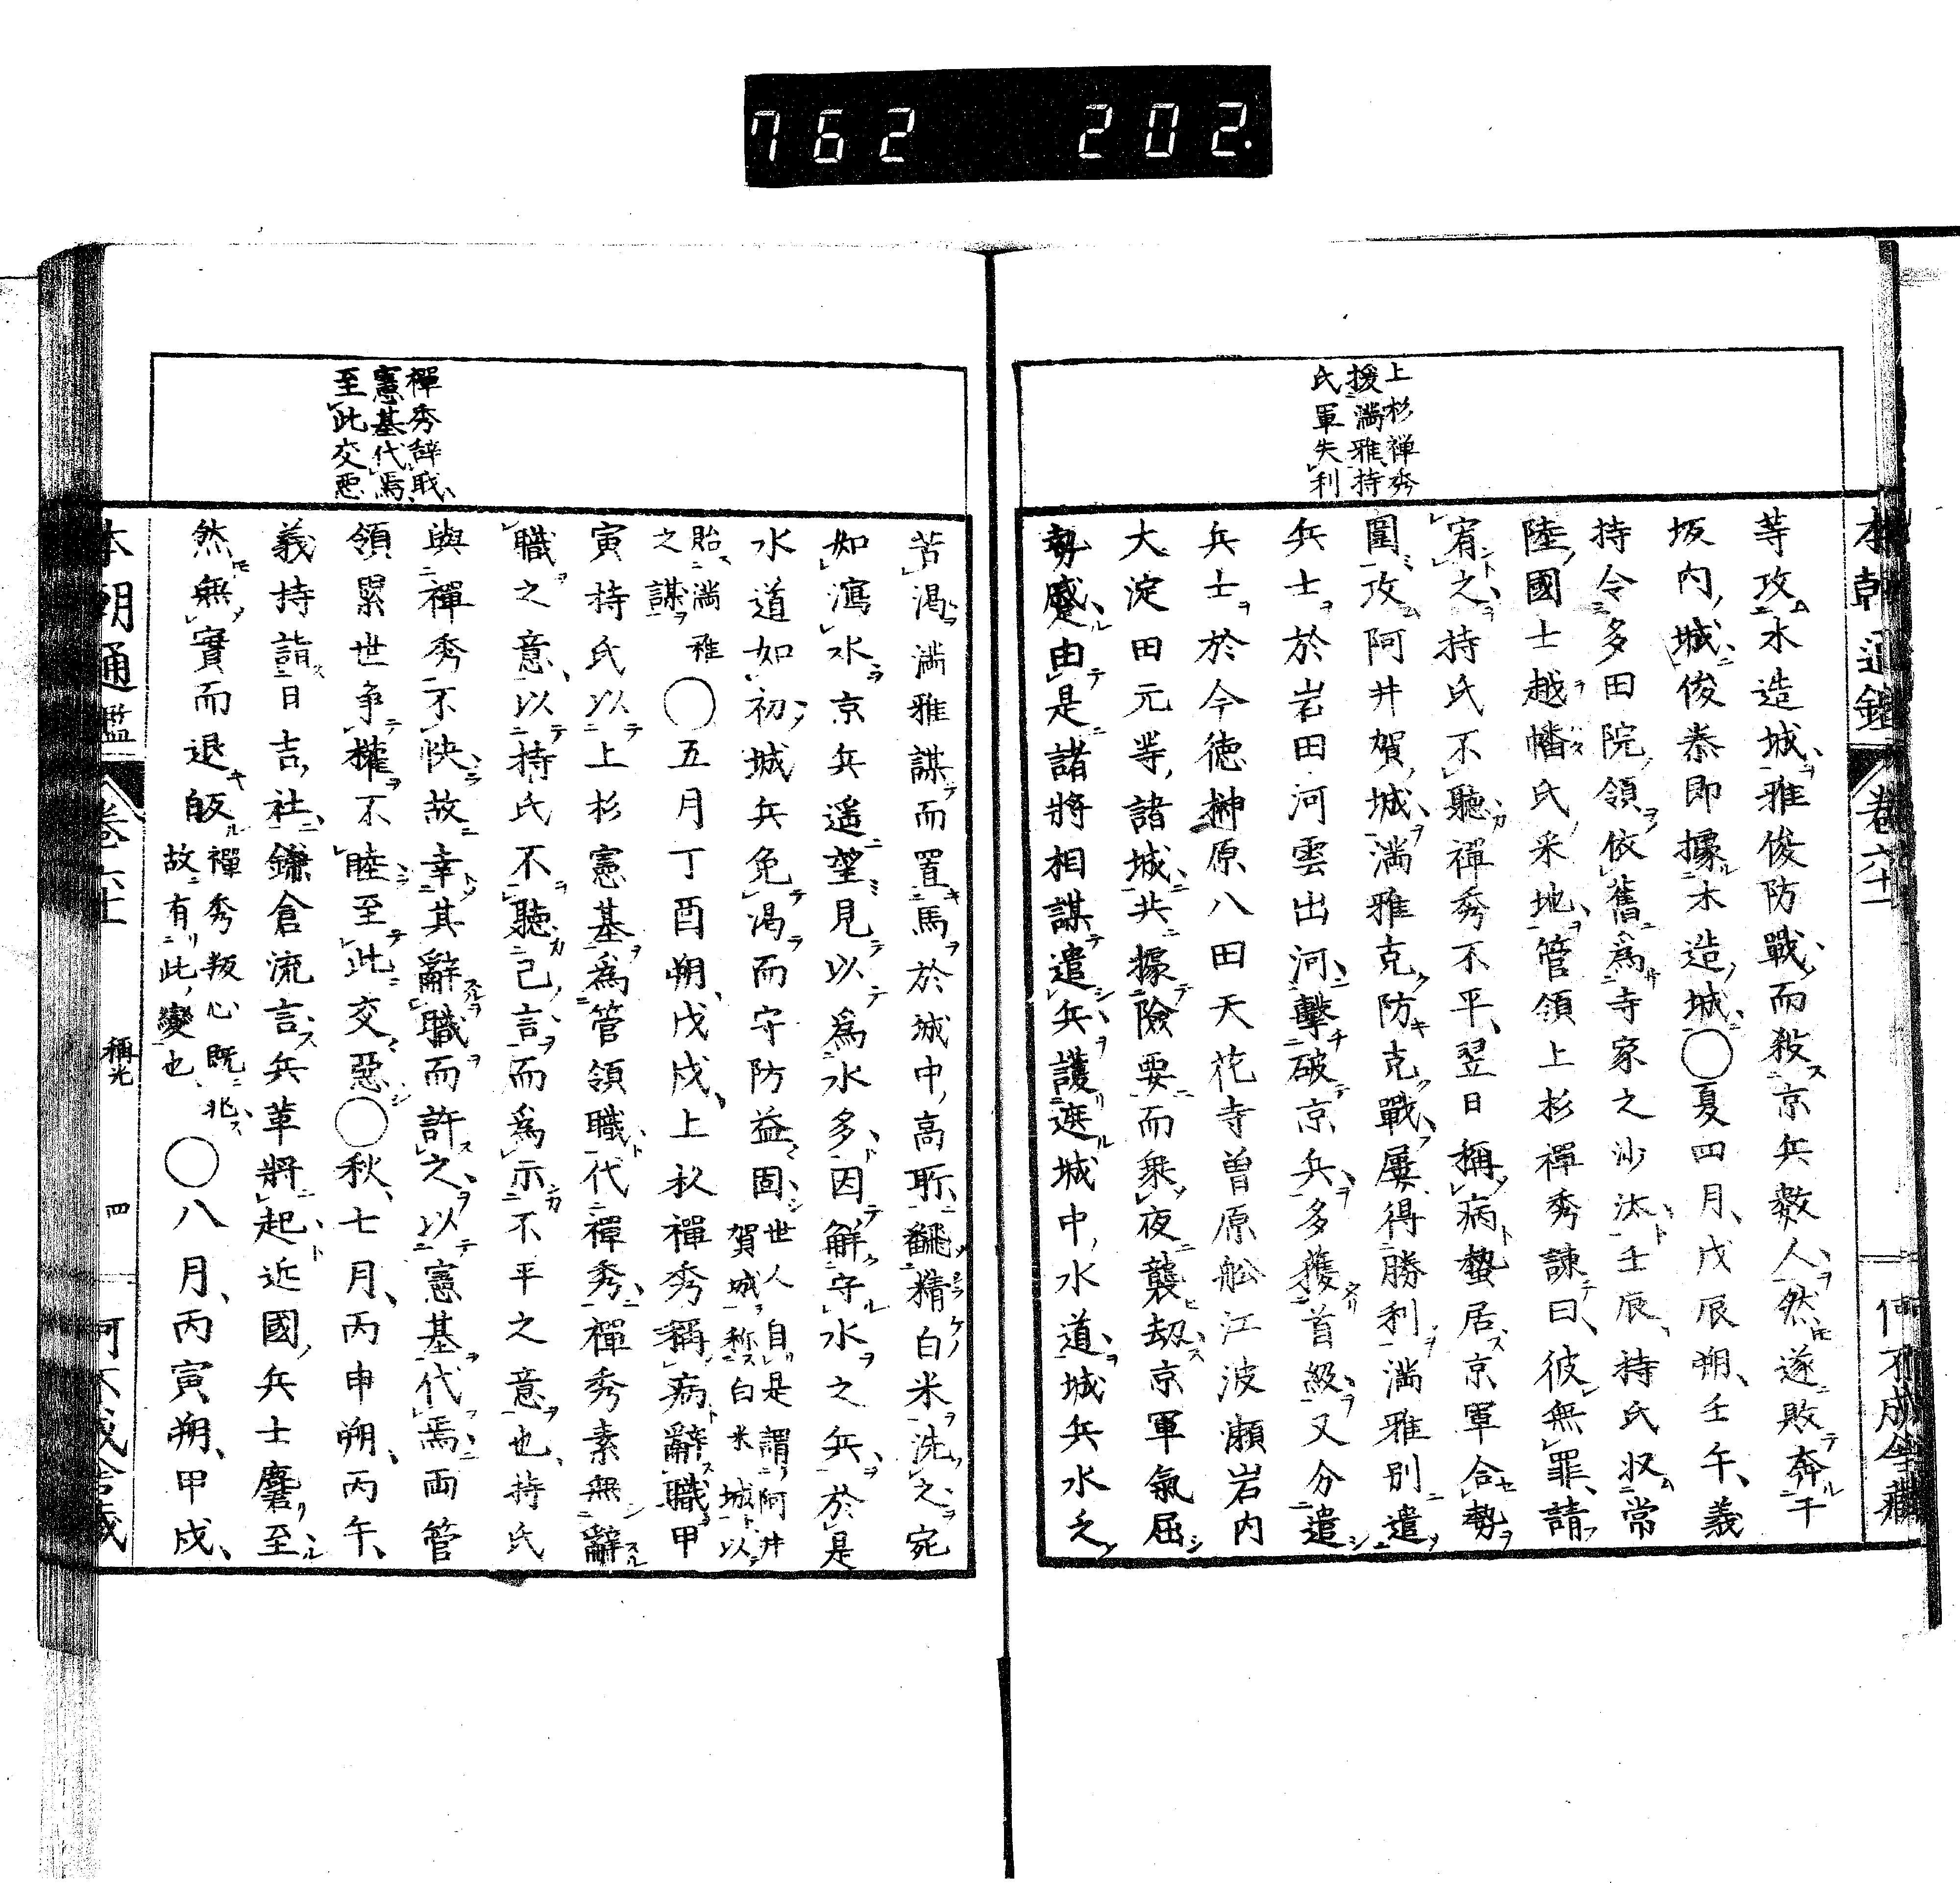 762 202.
上杉禅秀
援満雅持
氏軍失利
等攻木造城雅俊防戰而殺京兵數人然遂敗奔于
坂内城俊泰即據木造城〇夏四月戊辰朔壬午義
持令多田院領依舊為寺家之沙汰壬辰持氏収常
陸國士越幡氏采地管領上杉禪秀諫曰彼無罪請
宥之持氏不聽禪秀不平翌日稱病蟄居京軍合勢
圍攻阿井賀城満雅克防克戰屢得勝利満雅別遣
兵士於岩田河雲出河擊破京兵多獲首級又分遣
兵士於今徳榊原八田天花寺曽原舩江波瀬岩内
大淀田元等諸城共據險要而衆夜襲劫京軍氣屈
勢蹙由是諸將相謀遣兵護遮城中水道城兵水乏
苦渇満雅謀而置馬於城中高所翻精白米洗之宛
如瀉水京兵遥望見以為水多因解守水之兵於是
水道如初城兵免渇而守防益固世人自是謂阿井
賀城称白米城以
貽満雅
之謀〇五月丁酉朔戊戌上杉禪秀稱病辭職甲
寅持氏以上杉憲基為管領職代禪秀禪秀素無辭
職之意以持氏不聽己言而為示不平之意也持氏
與禪秀不快故幸其辭職而許之以憲基代焉両管
領累世争權不睦至此交惡〇秋七月丙申朔丙午
義持詣日吉社鎌倉流言兵革將起近國兵士麕至
然無實而退皈禪秀叛心既兆
故有此變也〇八月丙寅朔甲戌
禪秀辭職
憲基代焉
至此交悪
本朝通鑑 卷六十
稱光 四